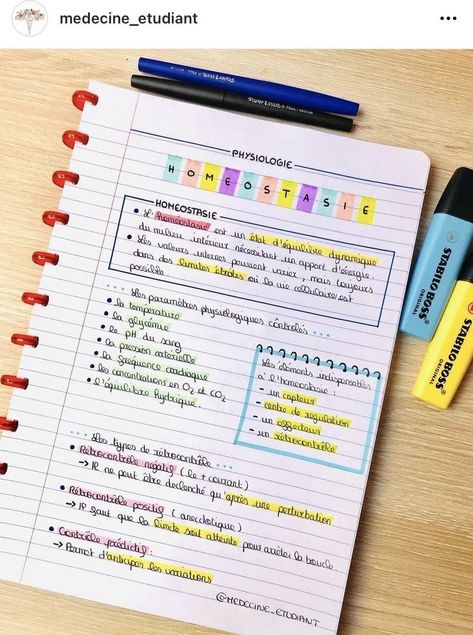 medecine_etudiant
PaperMate
PaperMate
PHYSIOLOGIE
HOMEOSTASIE
HOMEOSTASIE
• L'homéostasie est un état d'équilibre dynamique
du milieu intérieur nécessitant un apport d'énergie.
• Les valeurs internes peuvent varier, mais toujours
dans des limites étroites où la vie cellulaire est
possible.
... Les paramètres physiologiques contrôlés ...
• la température
• la glycémie
• le pH du sang
• la pression artérielle
• la fréquence cardiaque
• les concentrations en O2 et CO2
• l'équilibre hydrique.
Les éléments indispensables
à l'homéostasie :
- un capteur
- centre de régulation
- un effecteur
- un rétrocontrôle
... Les types de rétrocontrôle ...
• Rétrocontrôle négatif (le + courant)
→ Il ne peut être déclenché qu'après une perturbation
• Rétrocontrôle positif (anecdotique)
→ Il faut que la limite soit atteinte pour arrêter la boucle.
• Contrôle prédictif :
→ Permet d'anticiper les variations
@MEDECINE_ETUDIANT
STABILO BOSS
ORIGINAL
STABILO BOSS
ORIGINAL